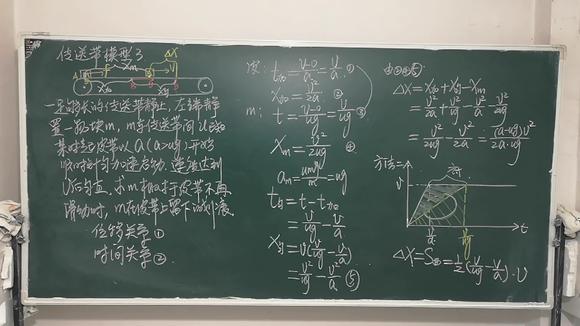 传送带模型3
ΔX
Xm
一足够长的传送带静止，左端静
置一物块m，m与传送带间μ已知
某时刻皮带以a(a>μg)开始
匀加速启动，速度达到
V后匀速，求m相对于皮带不再
滑动时，m在皮带上留下的划痕。
位移关学①
时间关学②
皮：t加=(v-0)/a=v/a ①
X加=v²/2a ②
m：t=(v-0)/μg=v/μg ③
Xm=v²/2μg ④
am=μmg/m=μg
t匀=t-t加
=v/μg-v/a
X匀=v(v/μg-v/a)
=v²/μg-v²/a ⑤
由②④⑤
ΔX=X加+X匀-Xm
=v²/2a+v²/μg-v²/a-v²/2μg
=v²/2μg-v²/2a=(a-μg)v²/2a·μg
方法二
v
t
v/a
v/μg
ΔX=S面=1/2(v/μg-v/a)·v